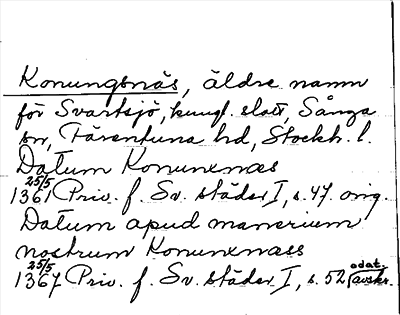 Konungsnäs, äldre namn
för Svartsjö, kungl. slott, Sånga
sn, Färentuna hd, Stockh. l.
Datum Konunxnæs
25/5 1361 Priv. f. Sv. städer I, s. 47. orig.
Datum apud manerium
nostrum Konunxnæss
25/5 1367 Priv. f. Sv. städer I, s. 52 odat. avskr.